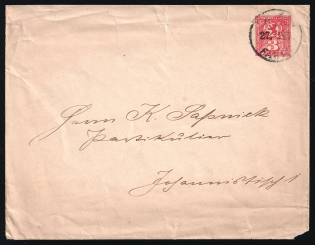 3
22
Herrn K. Sapnick
Partikülier
Johannistisch 1